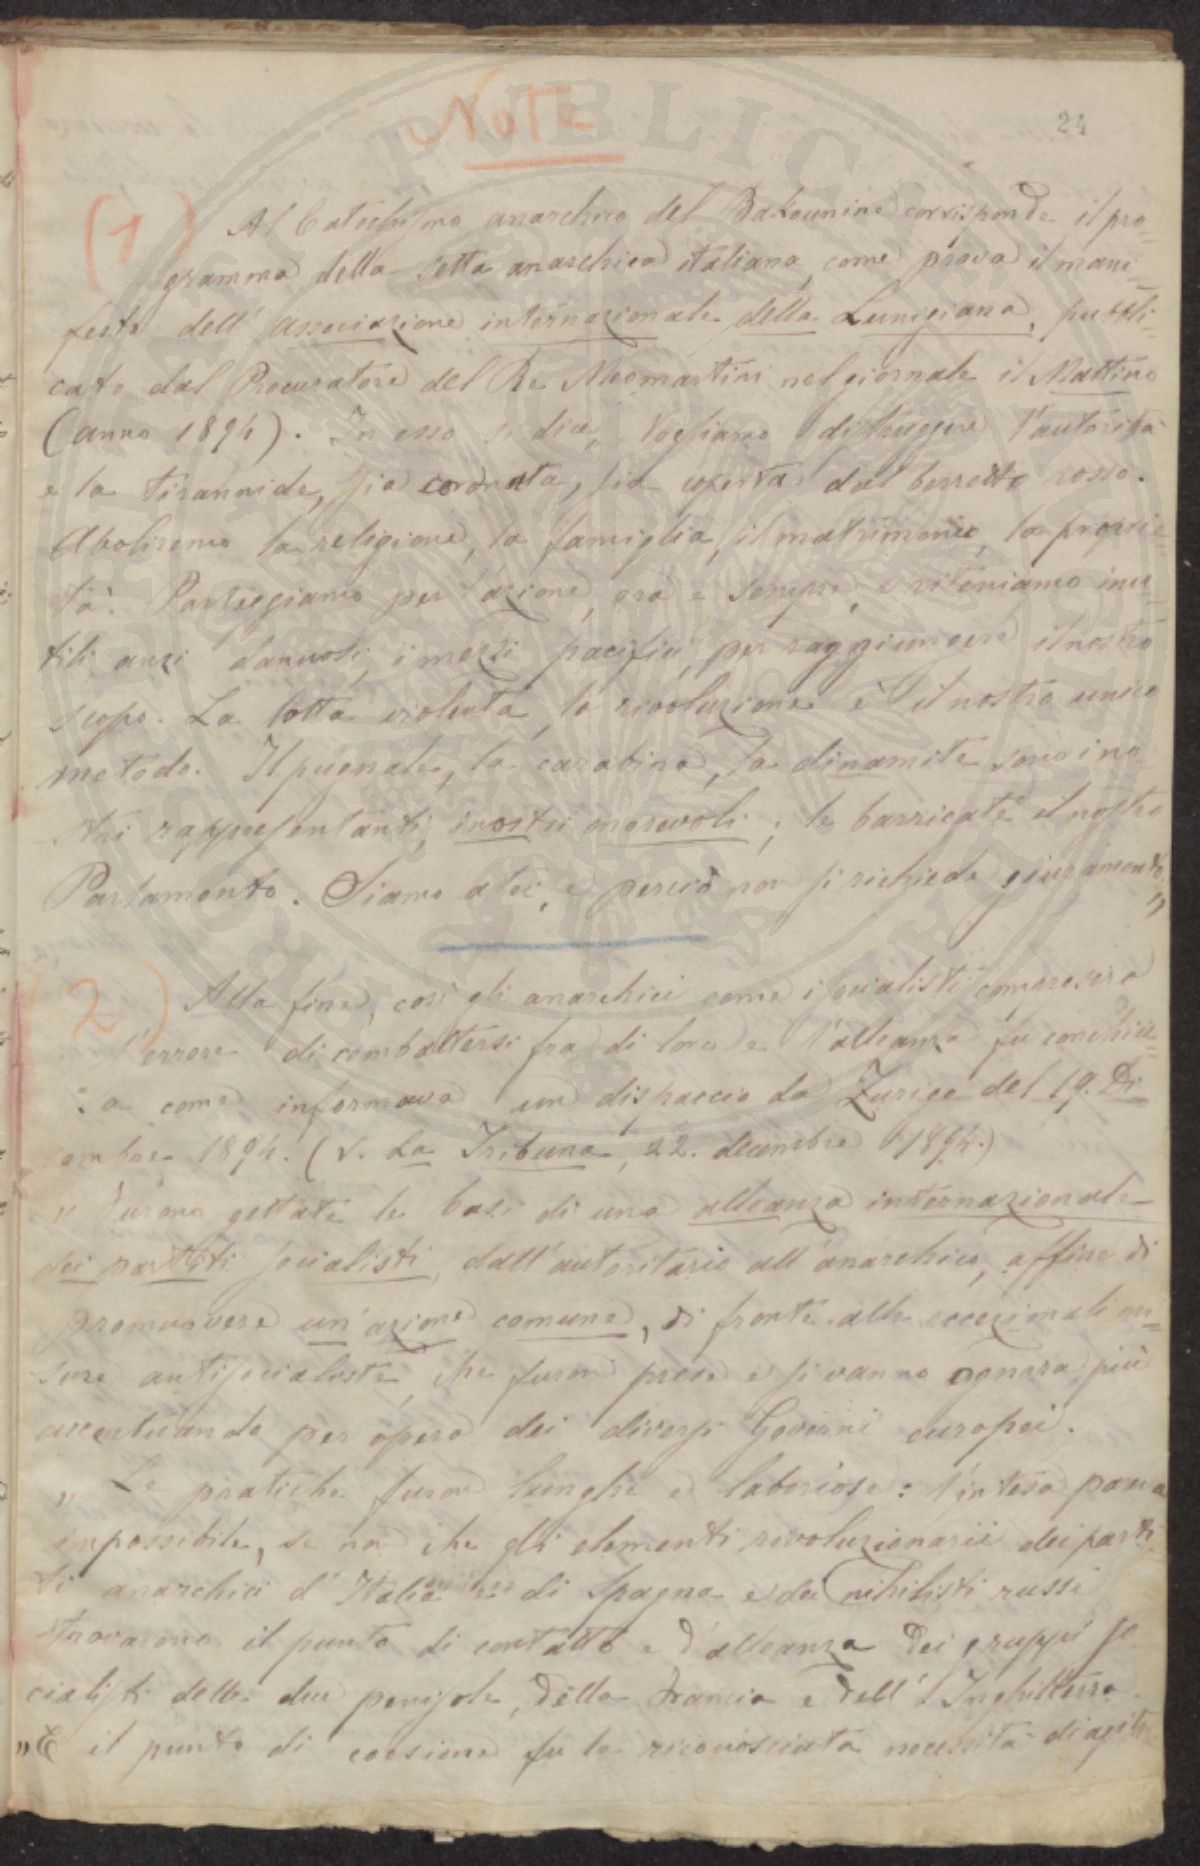 Note
24
(1) Al Catechismo anarchico del Bakounine corrisponde il pro=
gramma della setta anarchica italiana, come prova il mani=
festo dell'associazione internazionale della Lunigiana, pubbli=
cato dal Procuratore del Re Neomartini nel giornale il Mattino
(anno 1894). In esso si dice, Vogliamo distruggere l'autorità
e la tirannide, sia coronata, sia coperta dal berretto rosso.
Aboliremo la religione, la famiglia, il matrimonio, la proprie=
tà. Parteggiamo per l'azione, ora e sempre, e riteniamo inu=
tili anzi dannosi, i mezzi pacifici, per raggiungere il nostro
scopo. La lotta violenta, la rivoluzione è il nostro unico
metodo. Il pugnale, la carabina, la dinamite sono i no
stri rappresentanti, i nostri onorevoli; le barricate il nostro
Parlamento. Siamo atei, e perciò non si richiede giuramento,,
2) Alla fine, così gli anarchici come i socialisti compresero
l'errore di combattersi fra di loro e l'alleanza fu conchiu=
sa come informava un dispaccio da Zurigo del 19. Di
cembre 1894. (V. La Tribuna, 22. decembre 1894.)
" Furono gettate le basi di una alleanza internazionale
dei partiti socialisti, dall'autoritario all'anarchico, affine di
promuovere un'azione comune, di fronte alle eccezionali mi=
sure antisocialiste, che furon prese e si vanno ognora più
accentuando per opera dei diversi Governi europei.
" Le pratiche furon lunghe e laboriose: l'intesa parea
impossibile, se non che gli elementi rivoluzionarii dei parti
ti anarchici d'Italia e di Spagna e dei nihilisti russi
trovarono il punto di contatto e d'alleanza dei gruppi so
cialisti delle due penisole, della Francia e dell'Inghilterra.
" E il punto di coesione fu la riconosciuta necessità di agita